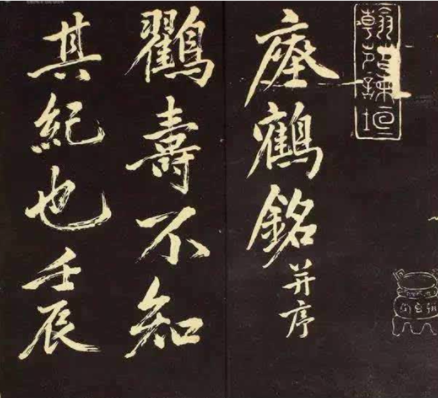 瘞鶴銘并序
鸖壽不知
其紀也壬辰